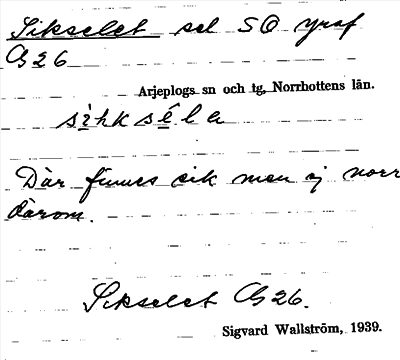 Sikselet sel SO Graf
C326
Arjeplogs sn och tg, Norrbottens län.
sìhkséla
Där finnes sik men ej norr
därom.
Sikselet C326.
Sigvard Wallström, 1939.